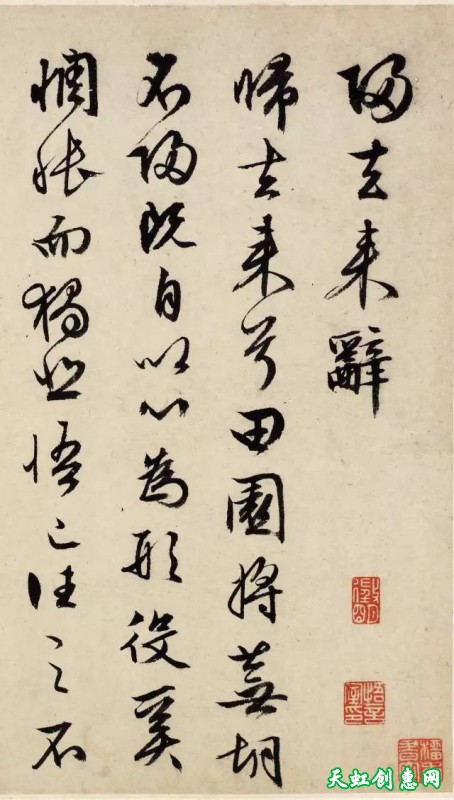 归去来辞
归去来兮田園将蕪胡
不归既自以心為形役奚
惆悵而獨悲悟已往之不
天虹创惠网